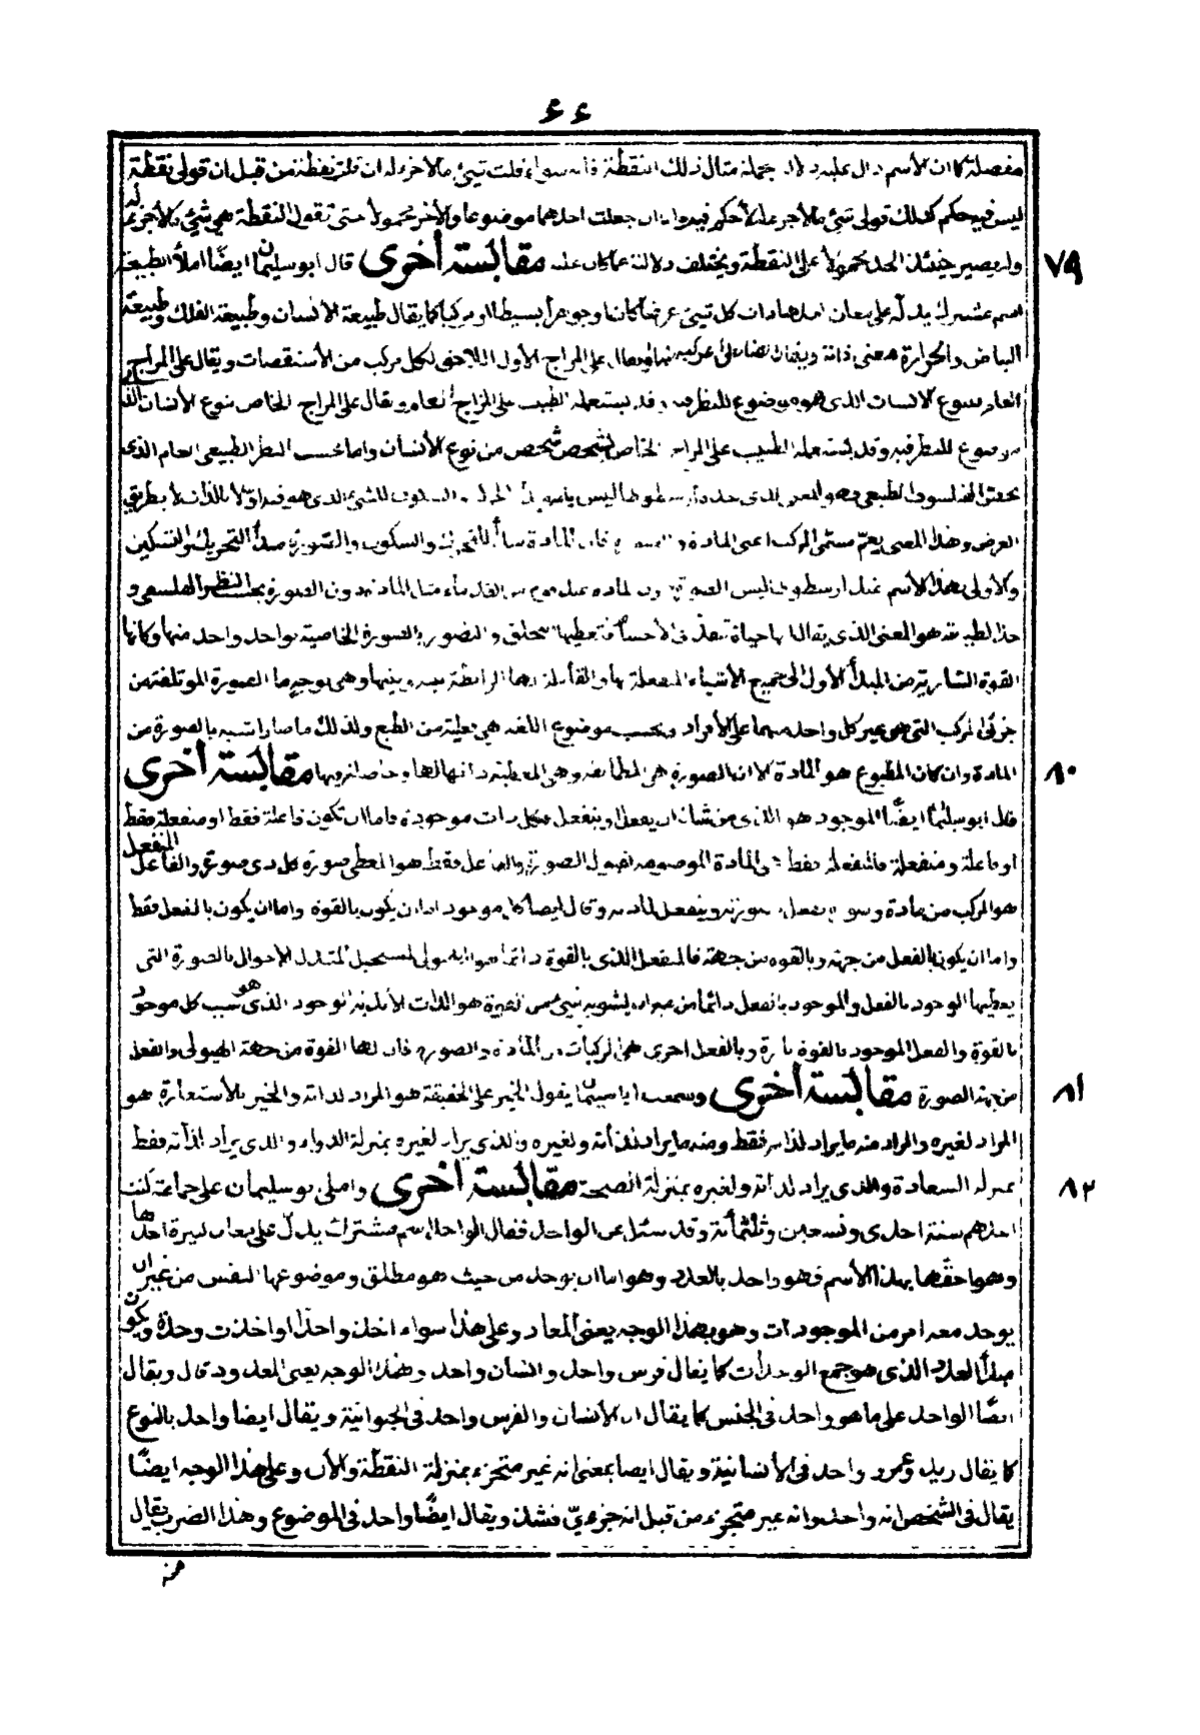 ٤٤
مفصلة كما ان الاسم دال عليه دلالة جملة مثال ذلك النقطة فانه سواء قلت شيئ مالاجزء له ان قلت نقطة من قبل ان قولى نقطة
ليس فيه حكم كذلك قولى شيئ مالاجزء له لا حكم فيه واما ان جعلت احدهما موضوعا والآخر محمولا حتى تقول النقطة هى شيئ مالاجزء له
وان يصير حينئذ الحد محمولا على النقطة ويختلف دلالته عما كان عليه مقابسة أخرى قال ابو سليمان ايضًا املأ الطبيعة
٧٩
اسم مشترك يدل على معان احدها ذات كل شيئ عرضا كان او جوهرا بسيطا او مركبا كما يقال طبيعة الانسان وطبيعة الفلك وطبيعة
البياض والحرارة بمعنى ذاته ويقال على المزاج الأول اللاحق لكل مركب من الأستقصات ويقال على المزاج
العام بنوع الانسان الذى هو موضوع للنظر فيه وقد يستعمله الطبيب على المزاج العام ويقال على المزاج الخاص بنوع الأنسان
موضوع للنظر فيه وقد يستعمله الطبيب على المزاج الخاص بشخص شخص من نوع الأنسان واما بحسب النظر الطبيعى العام الذى
يخص الفيلسوف الطبيعى فهو المعنى الذى حدده أرسطوطاليس بانه مبدأ الحركة والسكون للشيئ الذى هو فيه اولا بالذات لا بطريق
العرض وهذا المعنى يعم الركب اعنى المادة والصورة فان المادة مبدأ للتحرك والسكون والصورة مبدأ التحريك والتسكين
والأولى بهذا الأسم عند ارسطوطاليس الصورة دون المادة بحسب النظر الفلسفى و
حد الطبيعة هو المعنى الذى يقال انها حياة تنفذ فى الأجسام فتعطيها التخلق والتصور بالصورة الخاصية بواحد واحد منها وكانها
القوة السارية من المبدأ الأول الى جميع الأشياء المنفعلة بها والقابلة لها الرابطة بينه وبينها وهى بوجه ما الصورة المؤتلفة من
جزئى المركب التى هى غير كل واحد منهما على الأفراد وبحسب موضوع اللغة هى فعيلة من الطبع ولذلك ما صار اشبه بالصورة من
المادة وان كان المطبوع هو المادة الا ان الصورة هى الطابعة وهى المعطية ذاتها لها وحاصلة فيها مقابسة أخرى
٨٠
قال ابو سليمان ايضًا الموجود هو الذى من شأنه ان يفعل او ينفعل فكل ذات موجودة فاما ان تكون فاعلة فقط او منفعلة فقط
او فاعلة ومنفعلة فالمنفعل فقط هى المادة الموضوعة لقبول الصورة والفاعل فقط هو المعطى صورة كل ذى صورة والفاعل المنفعل
هو المركب من مادة وصورة يفعل بصورته وينفعل بمادته وقال ايضا كل موجود اما ان يكون بالقوة واما ان يكون بالفعل فقط
واما ان يكون بالفعل من جهة وبالقوة من جهة فالمنفعل الذى بالقوة دائما هو الهيولى المستحيل المتبدل الأحوال بالصورة التى
يعطيها الوجود بالفعل والموجود بالفعل دائما من غير ان يشوبه شيئ من الغيرة هو الذات الأبدية الوجود الذى هو سبب كل موجود
بالقوة والفعل الموجود بالقوة تارة وبالفعل اخرى هى المركبات من المادة والصورة فان لها القوة من جهة الهيولى والفعل
من جهة الصورة مقابسة أخرى وسمعت ابا سليمان يقول الخير على الحقيقة هو المراد لذاته والخير بالأستعارة هو
٨١
المراد لغيره والمراد منه ما يراد لذاته فقط ومنه ما يراد لذاته ولغيره والذى يراد لغيره بمنزلة الدواء والذى يراد لذاته فقط
بمنزلة السعادة والذى يراد لذاته ولغيره بمنزلة الصحة مقابسة أخرى واملى ابو سليمان على جماعة كنت
٨٢
احدهم سنة احدى وتسعين وثلثمائة وقد سئل عن الواحد فقال الواحد اسم مشترك يدل على معان كثيرة احدها
وهو احقها بهذا الأسم فهو واحد بالعدد وهو اما ان يوجد من حيث هو مطلق وموضوعها النفس من غير ان
يوجد معه امر من الموجودات وهو بهذا الوجه يعنى المعاد وعلى هذا سواء اخذ واحدًا او اخذت وحدة ويكون
مبدأ العدد الذى هو جمع الوحدات كما يقال فرس واحد وانسان واحد وبهذا الوجه يعنى المعدود قال ويقال
ايضًا الواحد على ما هو واحد فى الجنس كما يقال ان الأنسان والفرس واحد فى الحيوانية ويقال ايضا واحد بالنوع
كما يقال زيد وعمرو واحد فى الأنسانية ويقال ايضا بمعنى انه غير متجزء بمنزلة النقطة والآن وعلى هذا الوجه ايضًا
يقال فى الشخص انه واحد وانه غير متجزء من قبل انه جزءى فشذ ويقال ايضًا واحد فى الموضوع وهذا الضرب يقال